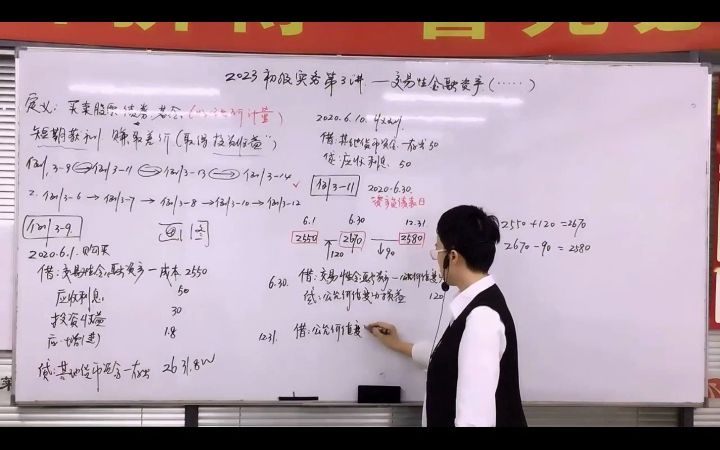 2023初级实务第3讲 — 交易性金融资产(……)
定义: 买卖股票 债券 基金
短期获利 赚取差价(取得投资收益")
例3-9 例3-11 例3-13 例3-14 ✓
2. 例3-6 → 例3-7 → 例3-8 → 例3-10 → 例3-12
例3-9 画图
2020.6.1 购买
借:交易性金融资产—成本 2550
应收利息: 50
投资收益 30
应 1.8
贷:其他货币资金—存出 2631.8W
2020.6.10. 收到利
借:其他货币资金—存出 50
贷:应收利息 50
例3-11 2020.6.30.
资产负债表日
6.1 6.30 12.31
2550 2670 2580
↑120 ↓90
6.30. 借:交易性金融资产—公允价值变
贷:公允价值变动损益 120
12.31. 借:公允价值变
2550+120=2670
2670-90=2580